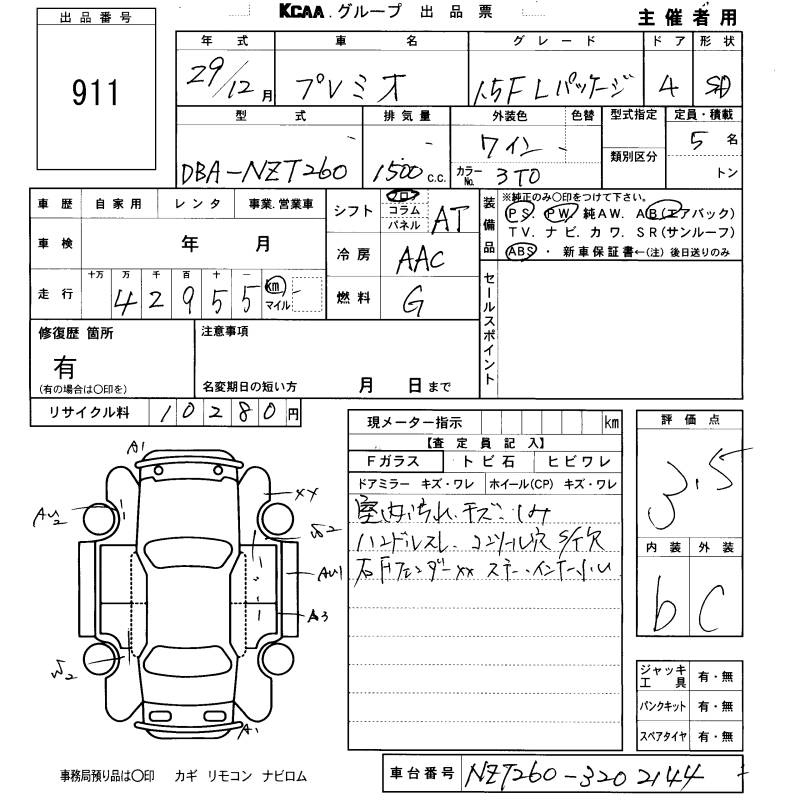 KCAA.グループ 出品票 主催者用
出品番号
911
年式 車名 グレード ドア 形状
29/12月 プレミオ 1.5F Lパッケージ 4 SD
型式 排気量 外装色 色替 型式指定 定員・積載
DBA-NZT260 1500c.c. ワイン 類別区分 5名
カラーNo. 3T0 トン
車歴 自家用 レンタ 事業.営業車
車検 年 月
走行 十万 万 千 百 十 一
42955 km マイル
シフト フロア コラム パネル AT
冷房 AAC
燃料 G
装備品
※純正のみ○印をつけて下さい。
PS. PW. 純AW. AB(エアバック)
TV. ナビ. カワ. SR(サンルーフ)
ABS ・ 新車保証書←(注)後日送りのみ
セールスポイント
修復歴 箇所
有
(有の場合は○印を)
注意事項
名変期日の短い方 月 日まで
リサイクル料 10280円
現メーター指示 km
【査定員記入】
Fガラス トビ石 ヒビワレ
ドアミラー キズ・ワレ ホイール(CP) キズ・ワレ
室内汚れ.キズ.シミ
ハンドルスレ. コンソール穴 S/穴
右Fフェンダーxx ステー.インナー小U
評価点
3.5
内装 外装
b C
ジャッキ工具 有・無
パンクキット 有・無
スペアタイヤ 有・無
A1
XX
AU2
W2
AU1
A3
W2
A1
事務局預り品は○印 カギ リモコン ナビロム
車台番号 NZT260-3202144